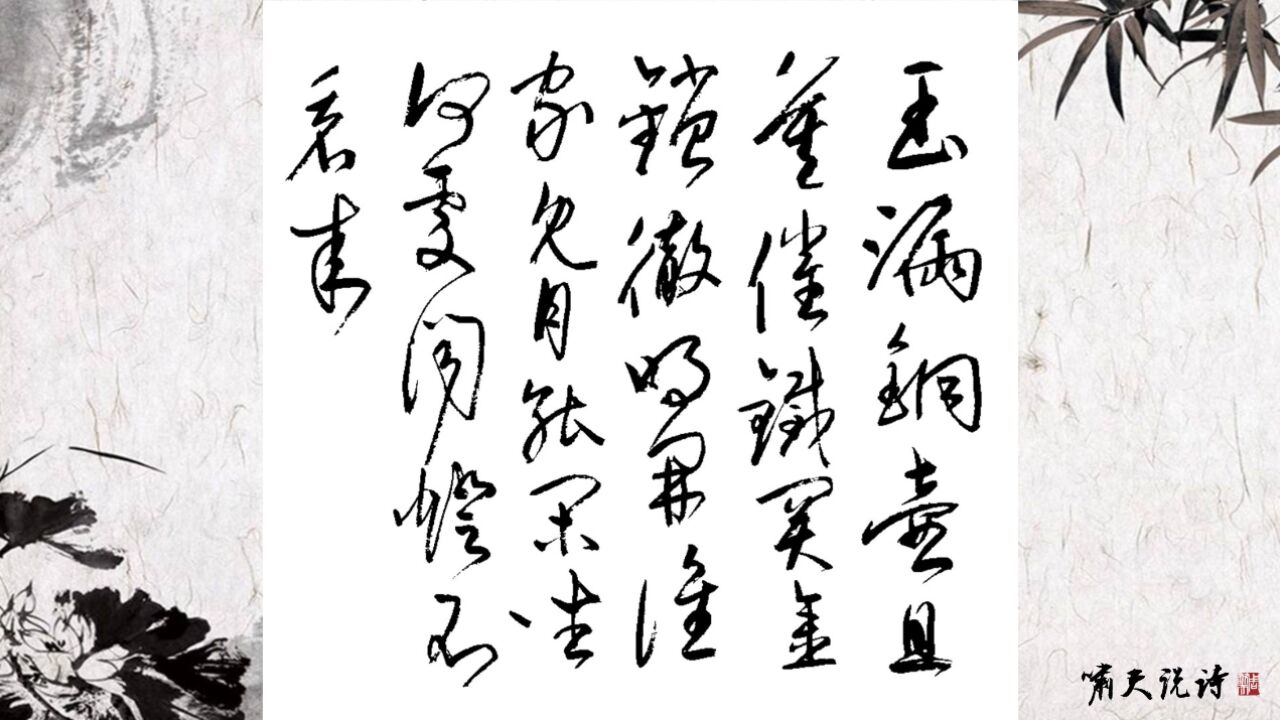 玉漏銅壺且
莫催鐵關金
鎖徹明開誰
家見月能閑坐
何處聞燈不
看來
嘯天说诗